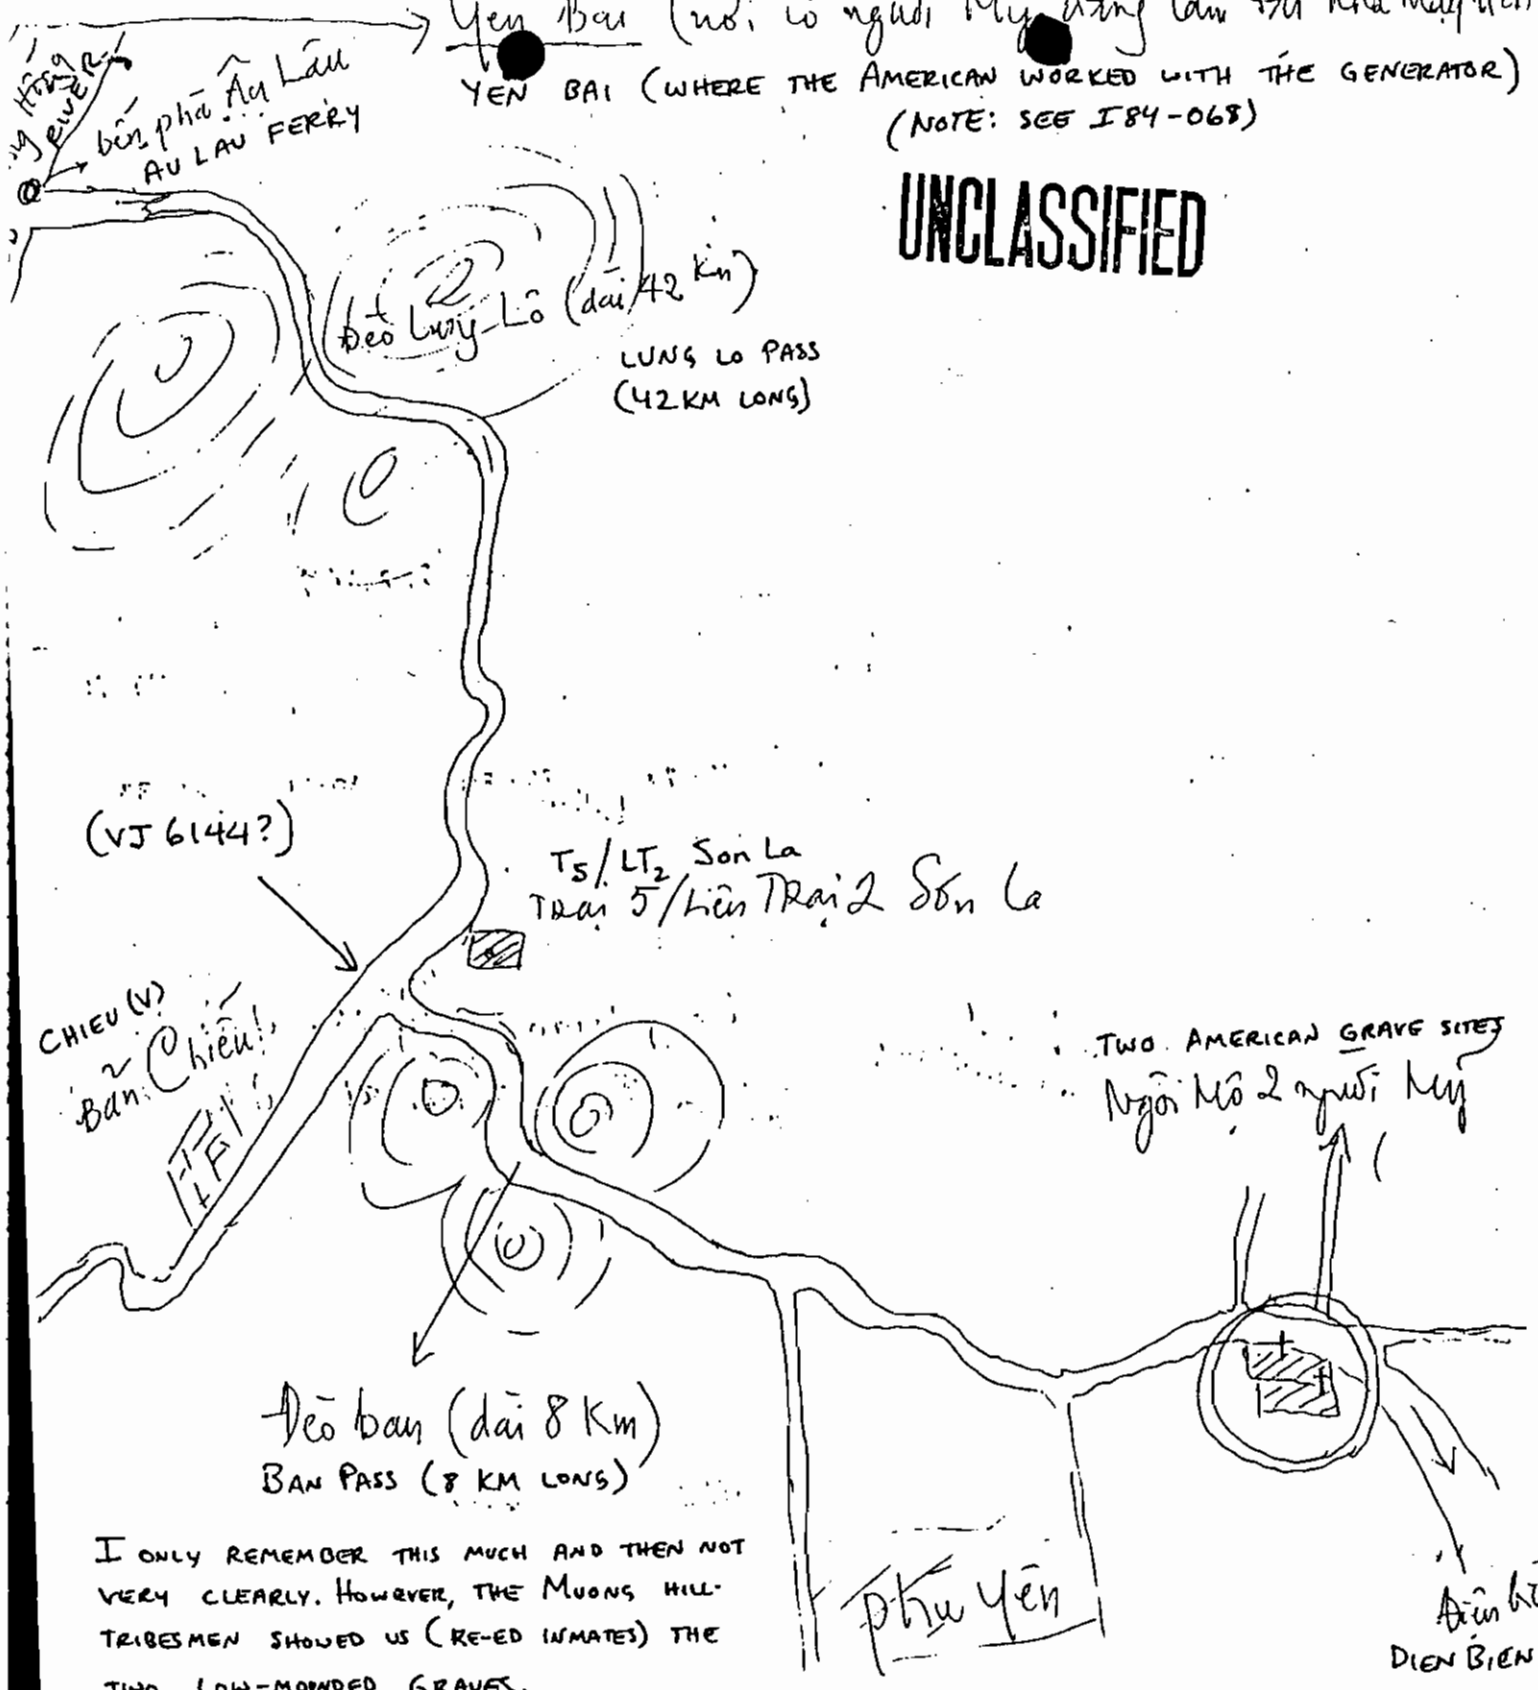 Yen Bai (nơi có người Mỹ đang làm
YEN BAI (WHERE THE AMERICAN WORKED WITH THE GENERATOR)
(NOTE: SEE I84-068)
Hồng
RIVER
bến phà Âu Lâu
AU LAU FERRY
UNCLASSIFIED
Đèo Lũng Lô (dài 42 Km)
LUNG LO PASS
(42 KM LONG)
(VJ 6144?)
T5/LT2 Son La
TRại 5/Liên TRại 2 Sơn La
CHIEU (V)
Bản Chiếu
TWO AMERICAN GRAVE SITES
Ngôi Mộ 2 người Mỹ
Đèo ban (dài 8 Km)
BAN PASS (8 KM LONG)
I ONLY REMEMBER THIS MUCH AND THEN NOT
VERY CLEARLY. HOWEVER, THE MUONG HILL-
TRIBESMEN SHOWED US (RE-ED INMATES) THE
TWO LOW-MOUNDED GRAVES.
Phù Yên
DIEN BIEN